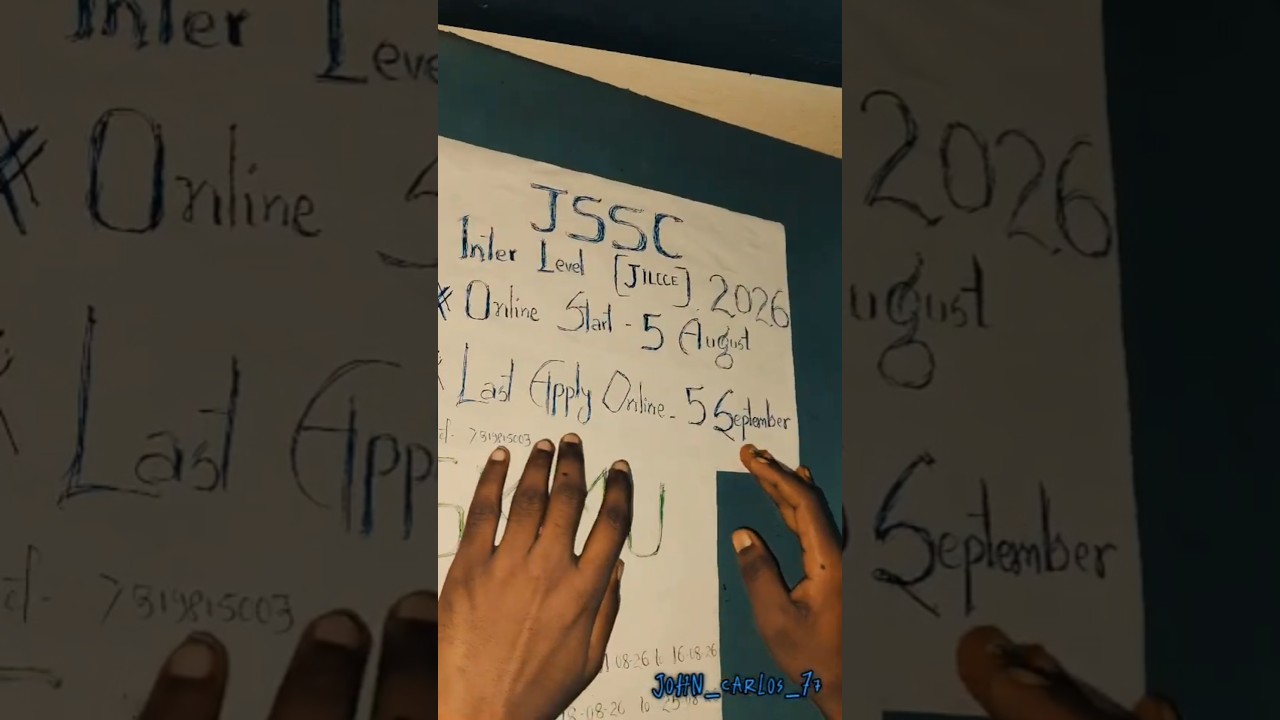 JSSC
Inter Level [JILCCE]. 2026
* Online Start - 5 August
* Last Apply Online - 5 September
7319815003
08-26 to 16-08-26
18-08-26 to 25-08
JOHN_CARLOS_77